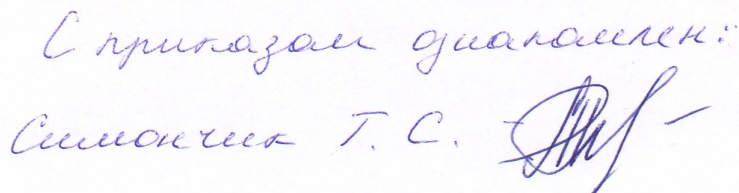 С приказом ознакомлен:
Симончик Т. С.